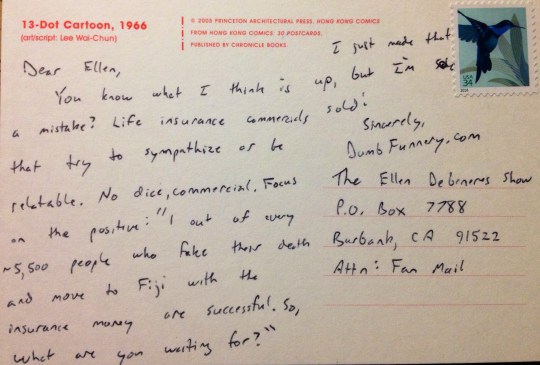 13-Dot Cartoon, 1966
(art/script: Lee Wai-Chun)
© 2006 PRINCETON ARCHITECTURAL PRESS, HONG KONG COMICS
FROM HONG KONG COMICS: 30 POSTCARDS.
PUBLISHED BY CHRONICLE BOOKS.
Dear Ellen,
You know what I think is
a mistake? Life insurance commercials
that try to sympathize or be
relatable. No dice, commercial. Focus
on the positive: "1 out of every
~5,500 people who fake their death
and move to Fiji with the
insurance money are successful. So,
what are you waiting for?"
I just made that
up, but I'm
sold!
Sincerely,
DumbFunnery.com
The Ellen Degeneres Show
P.O. Box 7788
Burbank, CA 91522
Attn: Fan Mail